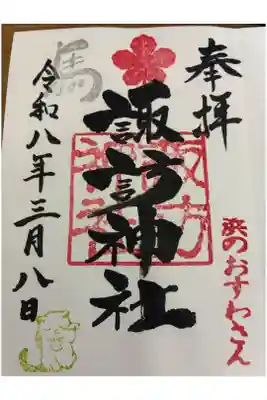 奉拝
浜のおすわさん
諏訪神社
諏訪神社
馬
令和八年三月八日